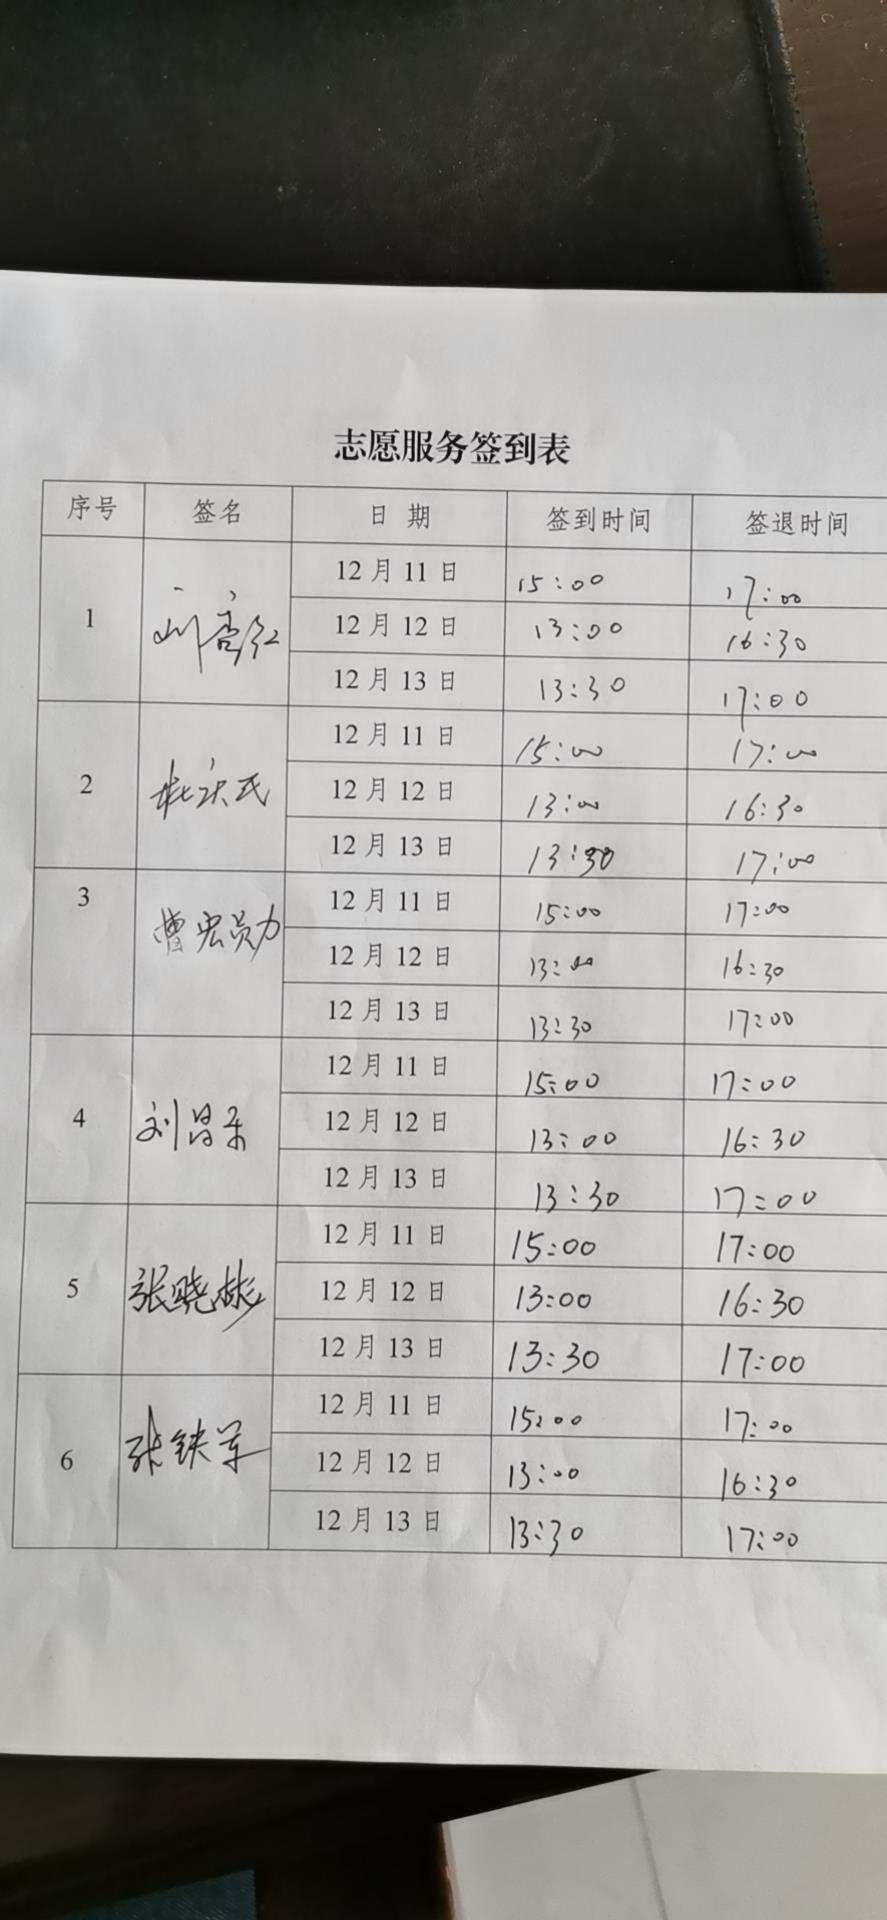 志愿服务签到表
序号 签名 日 期 签到时间 签退时间
1 12月11日 15:00 17:00
12月12日 13:00 16:30
12月13日 13:30 17:00
2 12月11日 15:00 17:00
12月12日 13:00 16:30
12月13日 13:30 17:00
3 曹宏勋 12月11日 15:00 17:00
12月12日 13:00 16:30
12月13日 13:30 17:00
4 12月11日 15:00 17:00
刘昌 12月12日 13:00 16:30
12月13日 13:30 17:00
5 12月11日 15:00 17:00
张晓彬 12月12日 13:00 16:30
12月13日 13:30 17:00
6 12月11日 15:00 17:00
张铁军 12月12日 13:00 16:30
12月13日 13:30 17:00